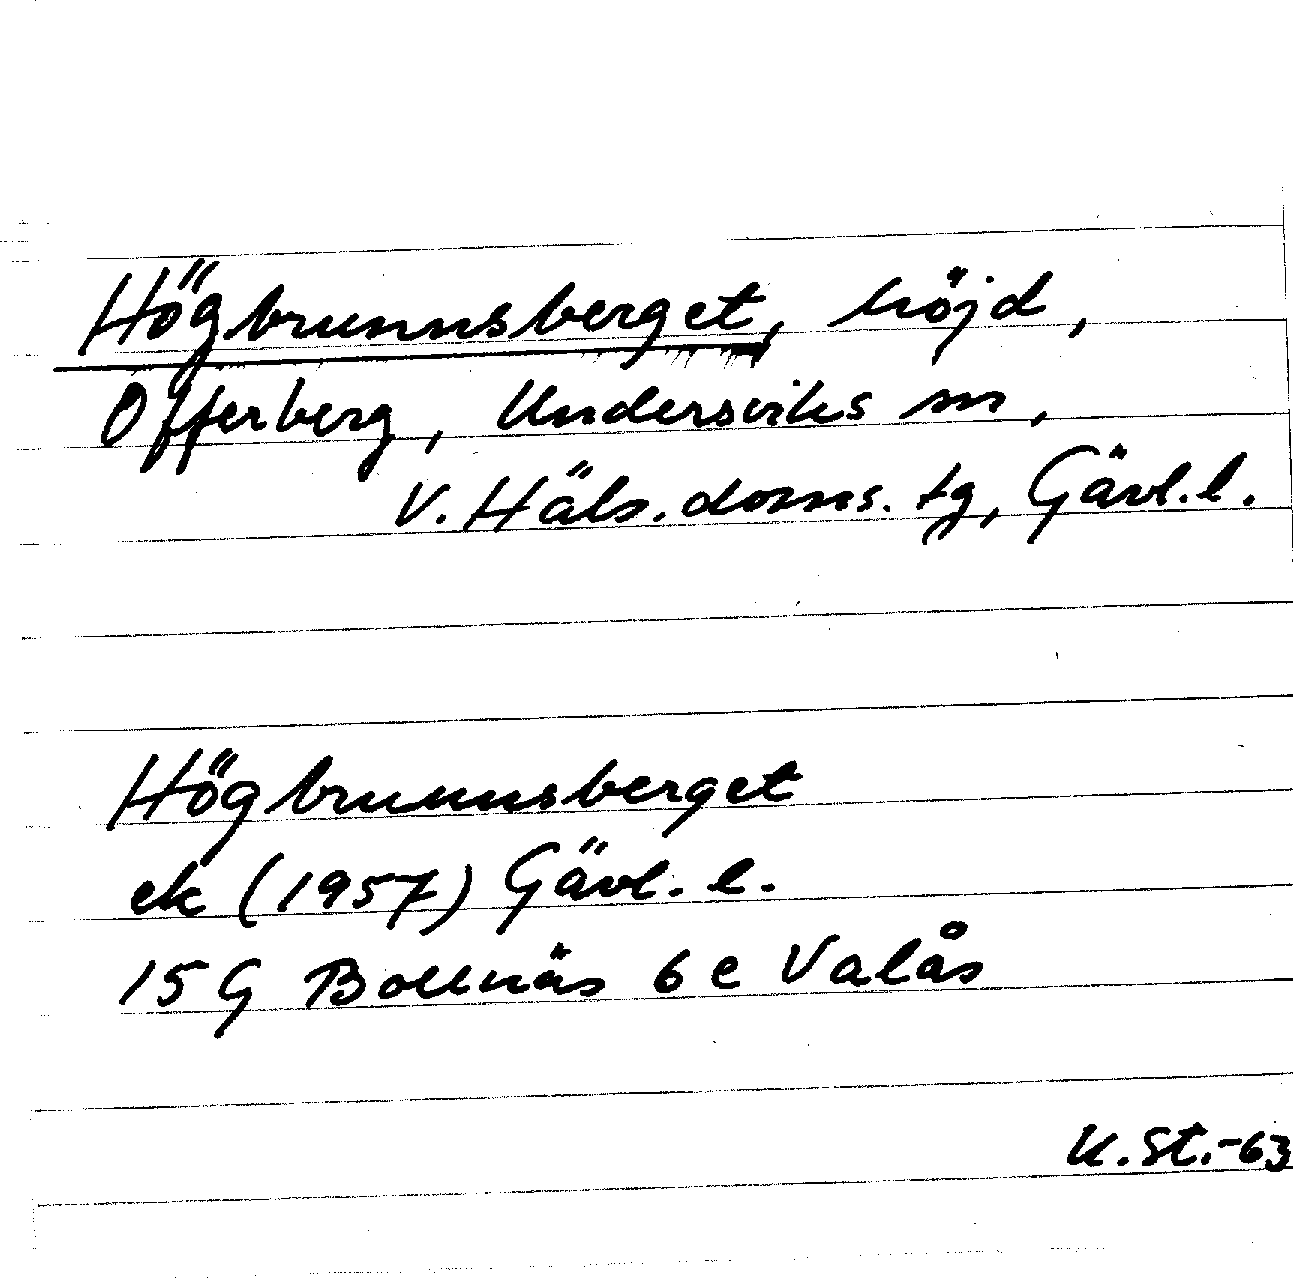 Högbrunnsberget, höjd,
Offerberg, Undersviks sn,
V. Häls. doms. tg, Gävl. l.
Högbrunnsberget
ek (1957) Gävl. l.
15 G Bollnäs 6 e Valås
K. St. -63